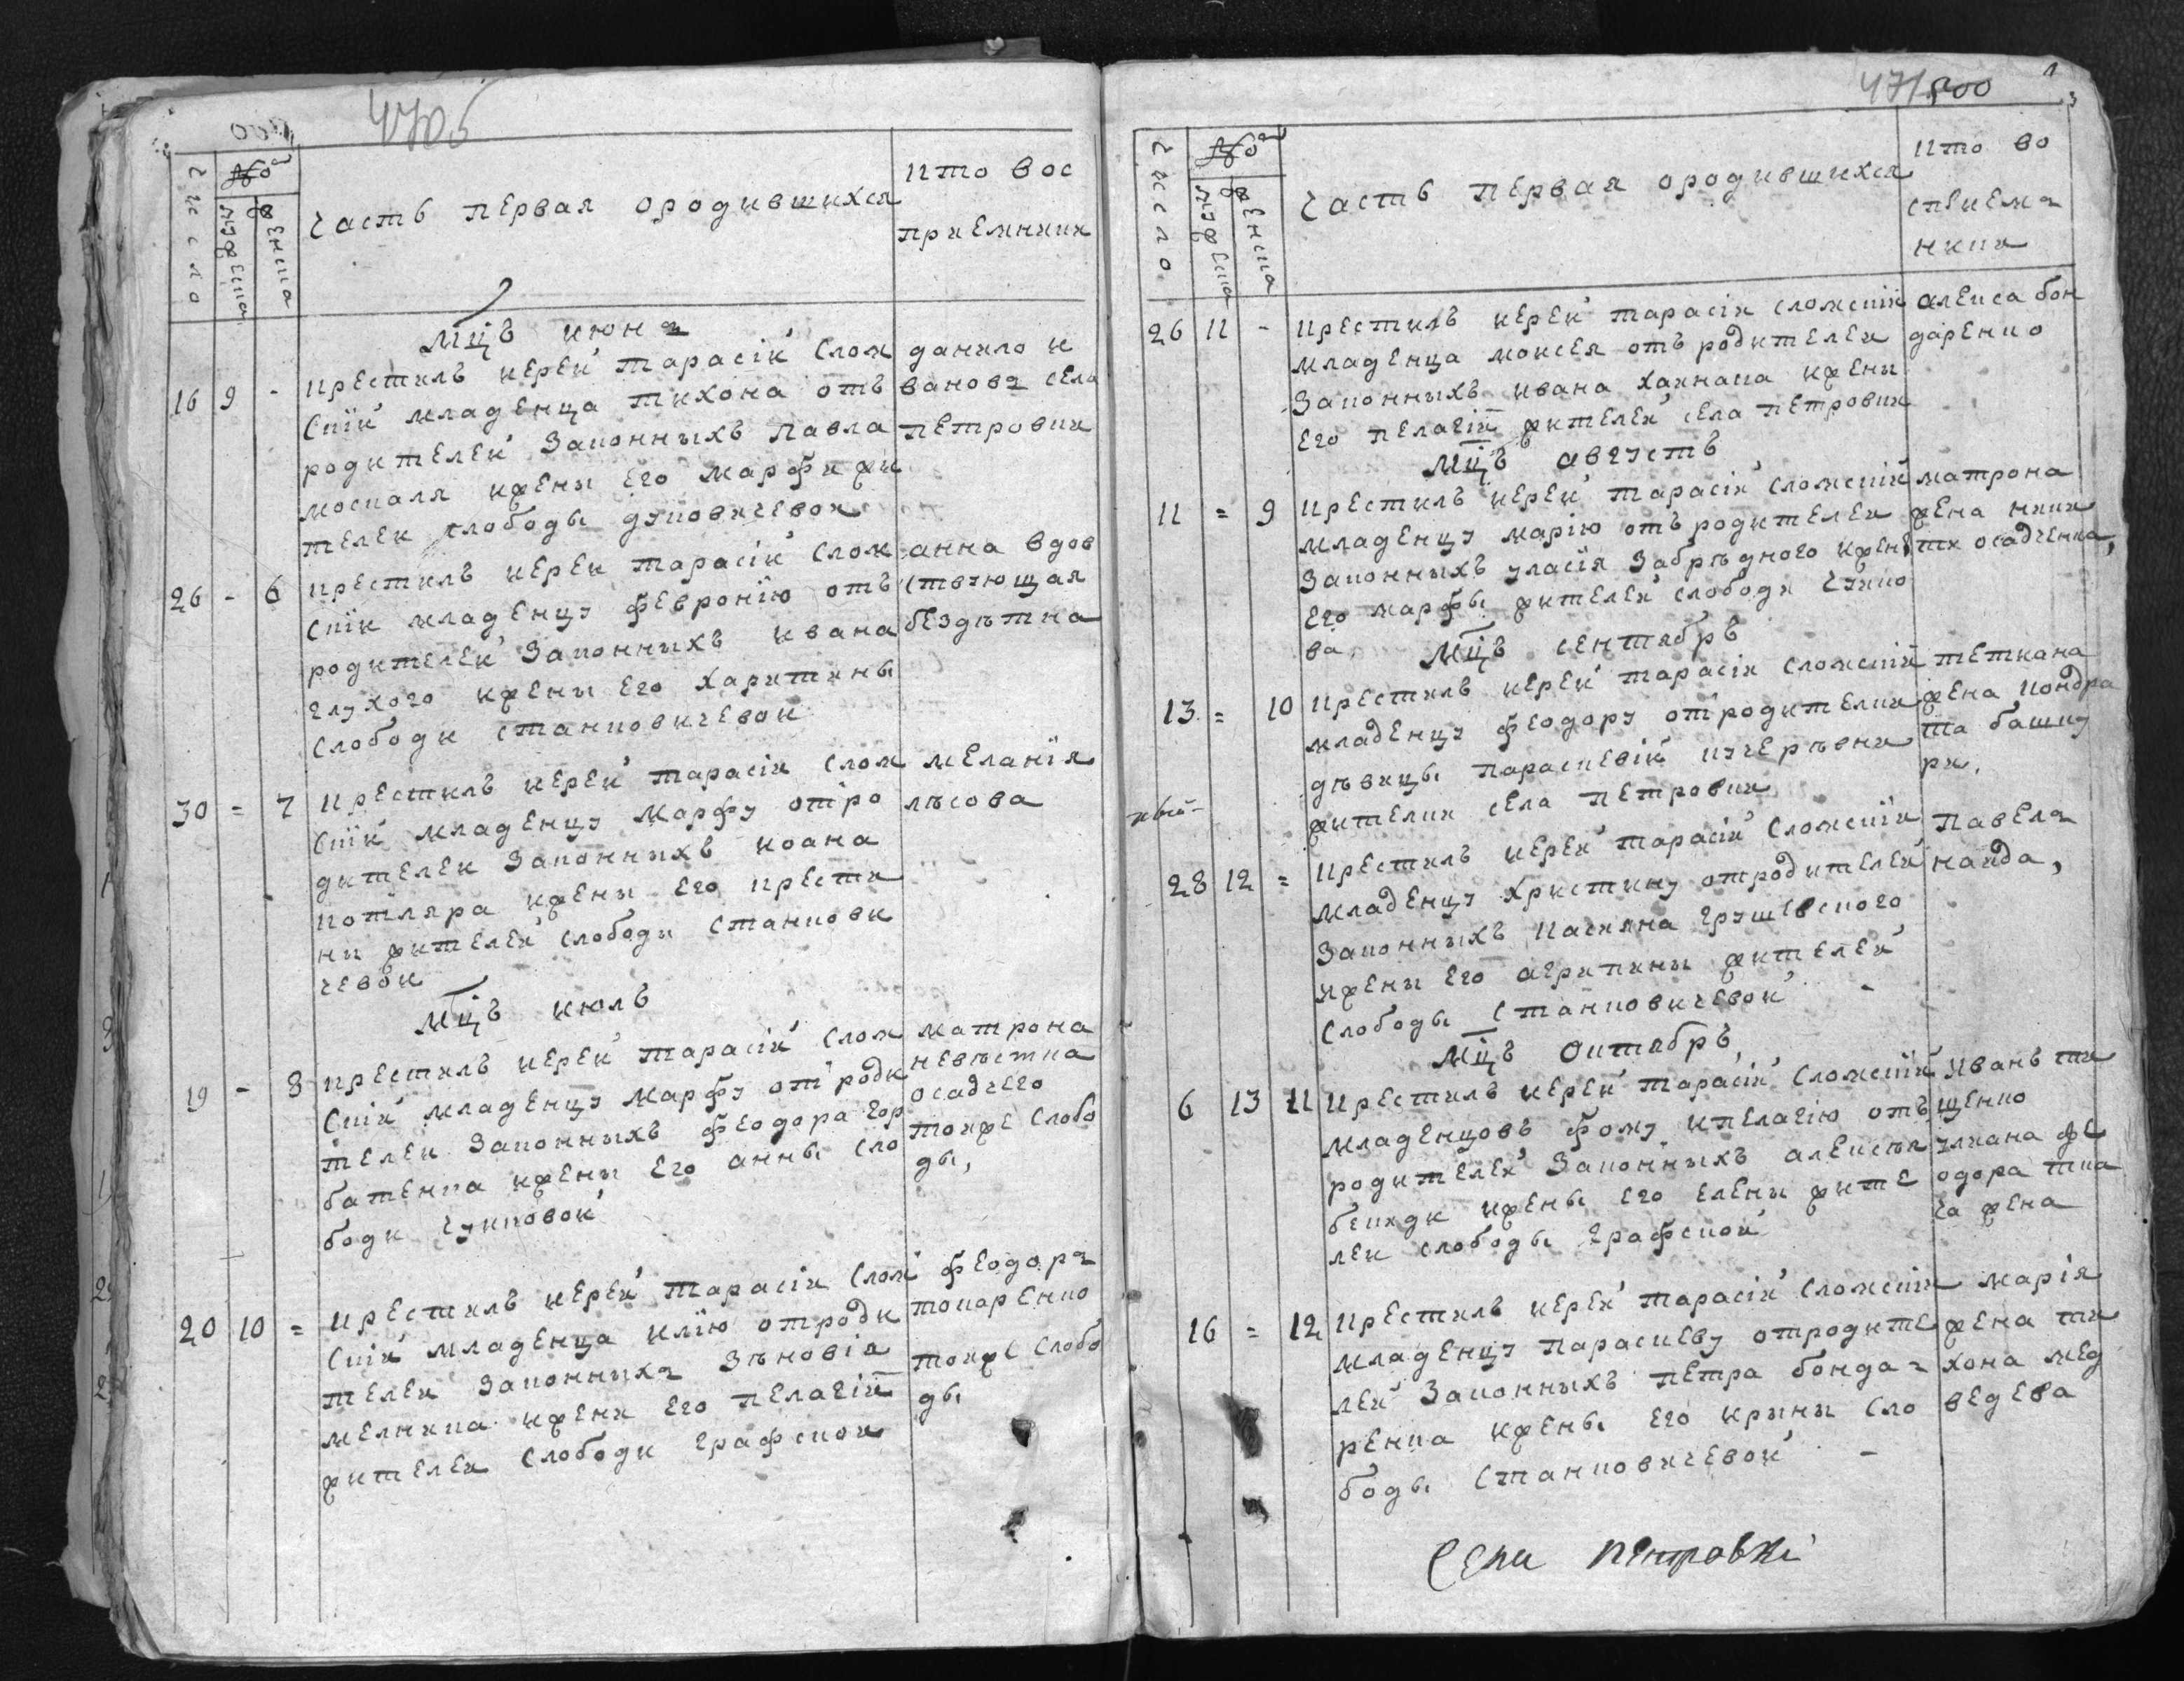 470б
число
№
мужеска
женска
часть первая ородившихся
кто вос
приемники
мцъ июнъ
16 9 - крестилъ иереи тарасіи слом
скіи младенца тихона отъ
родителеи законныхъ павла
москаля ижены его марфи жи
телеи слободы
данило и
вановъ села
петровки
26 - 6 крестилъ иереи тарасіи слом
скіи младенцу февронію отъ
родителеи законныхъ ивана
глухого ижены его харитины
слободи станковичевои
анна вдов
ствующая
бездѣтна
30 = 7 крестилъ иереи тарасіи слом
скіи младенцу марфу отро
дителеи законныхъ иоана
котляра ижены его крести
ни жителеи слободи станкови
чевои
меланія
лѣсова
мцъ июлъ
19 - 8 крестилъ иереи тарасіи слом
скіи младенцу марфу отроди
телеи законныхъ феодора гор
батенка ижены его анны сло
боди
матрона
невѣстка
осадчего
тоиже слобо
ды,
20 10 = крестилъ иереи тарасіи слом
скіи младенца илію отроди
телеи законнихъ зѣновія
мелника ижени его пелагіи
жителеи слободи графскои
феодоръ
токаренко
тоиже слобо
ды
471 500
число
№
мужеска
женска
часть первая ородившихся
кто во
спиема
ники
26 11 - крестилъ иереи тарасіи сломскіи
младенца моисея отъ родителеи
законныхъ ивана ижены
его пелагіи жителеи села петровки
алекса бон
даренко
мцъ августъ
11 = 9 крестилъ иереи тарасіи сломскіи
младенцу марію отъ родителеи
законныхъ уласія забрѣдного ижены
его марфы жителеи слободи
ва,
матрона
жена ники
ти осадченка,
мцъ сентябръ
13 = 10 крестилъ иереи тарасіи сломскіи
младенцу феодору отродителки
дѣвицы параскевіи
жителки села петровки
тетиана
жена кондра
та башку
ри,
28 12 = крестилъ иереи тарасіи сломскіи
младенцу христину отродителеи
законныхъ касияна грушевского
ижены его агрипины жителеи
слободы станковичевои -
павелъ
наида,
мцъ октябръ
6 13 11 крестилъ иереи тарасіи сломскіи
младенцовъ фому ипелагію отъ
родителеи законныхъ алексѣя
ижены его елены жите
леи слободы графскои
иванъ ти
щенко
улиана фе
одора тка
ча жена
16 = 12 крестилъ иереи тарасіи сломскіи
младенцу параскеву отродите
леи законныхъ петра бонда=
ренка ижены его ирыны сло
боды станковичевои -
марія
жена ти
хона мед
ведева
Села Петровки